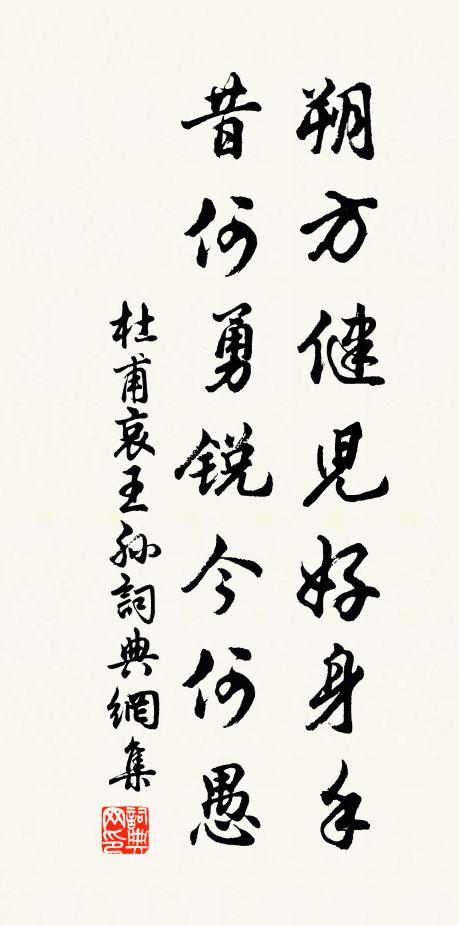 朔方健兒好身手
昔何勇銳今何愚
杜甫哀王孫詞典網集
詞典网印